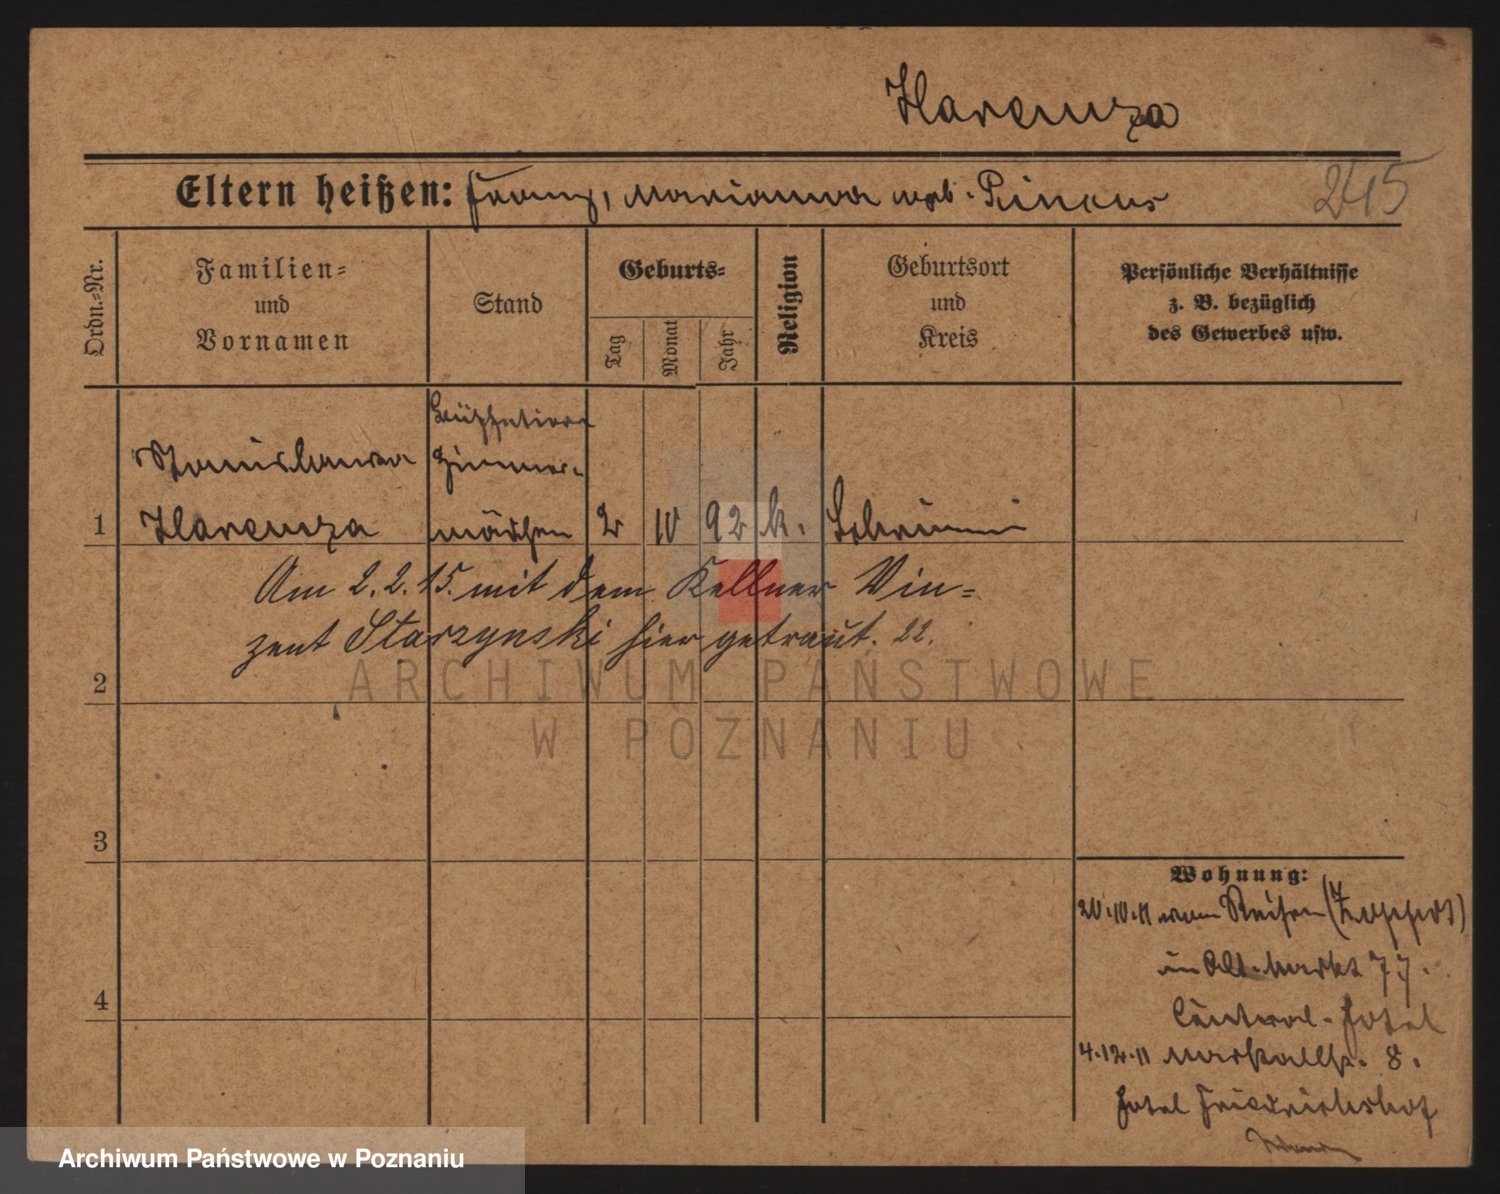 Harenza
Eltern heißen: Franz, Marianna geb. Pincus
245
Ordn.-Nr.
Familien-
und
Vornamen
Stand
Geburts-
Tag
Monat
Jahr
Religion
Geburtsort
und
Kreis
Persönliche Verhältnisse
z. B. bezüglich
des Gewerbes usw.
Stanislawa
Zimmer-
1 Harenza mädchen 2 10 92 k. Schrimm
Am 2.2.15. mit dem Kellner Vin-
zent Starzynski hier getraut. 22.
2
3
4
Wohnung:
20.10.11 von Reisen (Zoppot)
in Alt. Markt 77.
Central-Hotel
4.12.11 8.
Hotel Friedrichshof
ARCHIWUM PAŃSTWOWE
W POZNANIU
Archiwum Państwowe w Poznaniu